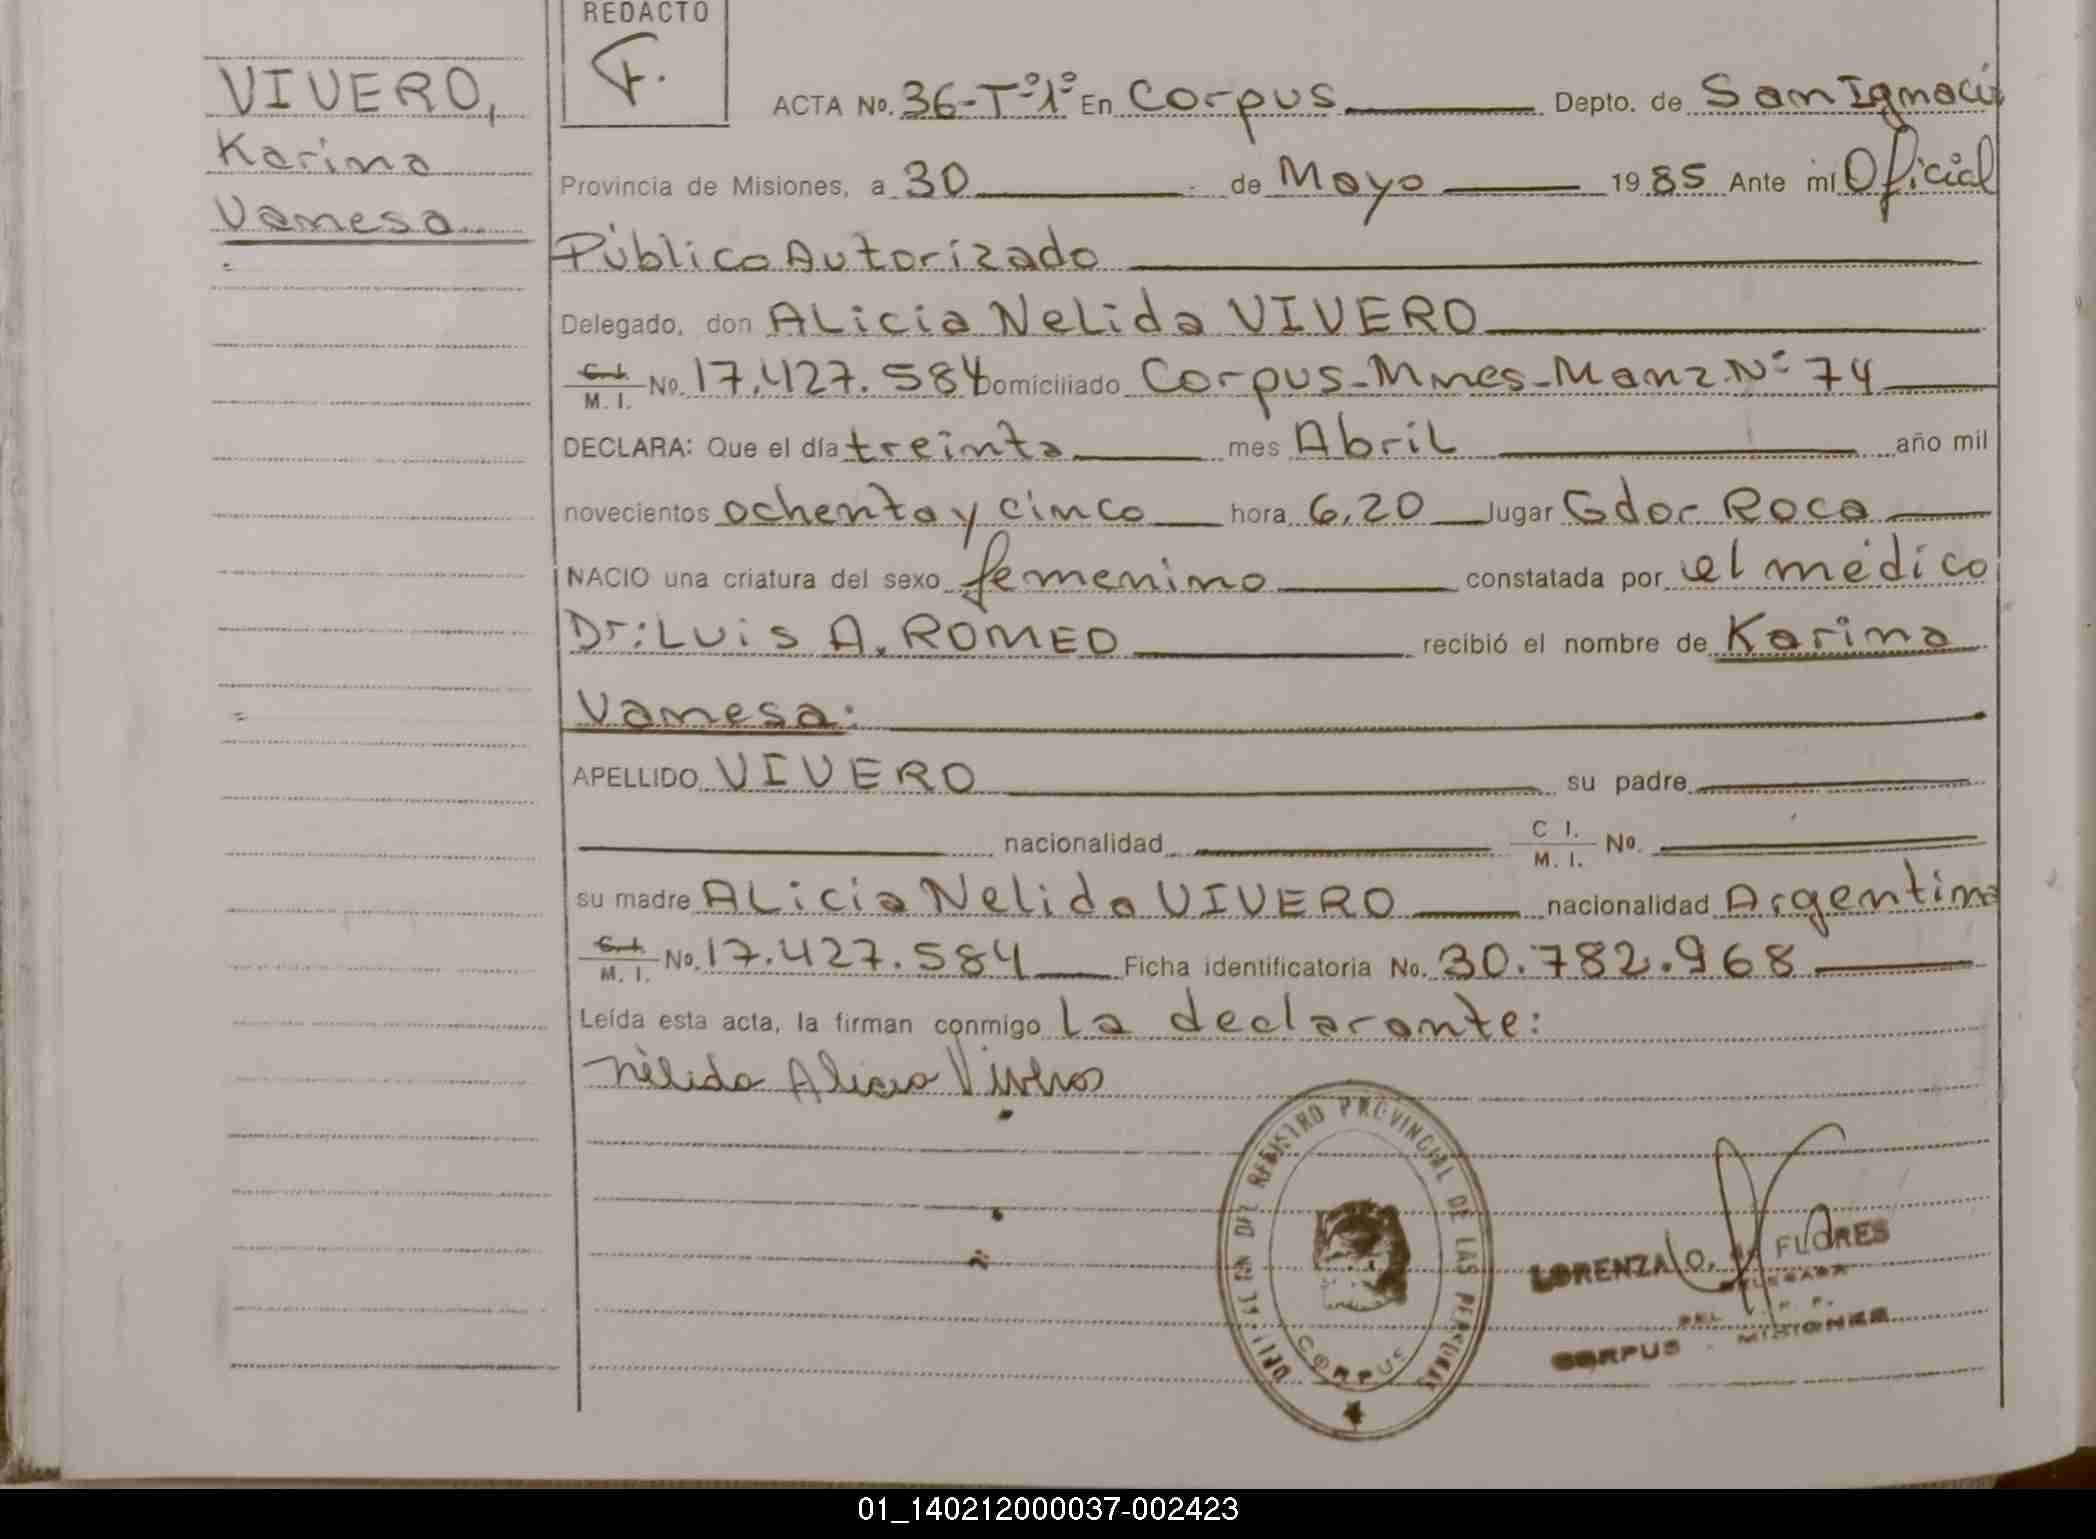 REDACTO
VIVERO,
Karina
Vanesa
ACTA No. 36-Tº1º En Corpus Depto. de San Ignacio
Provincia de Misiones, a 30 de Mayo 1985 Ante mí Oficial
Público Autorizado
Delegado, don ALicia Nelida VIVERO
C.I. M. I. No. 17.427.584 Domiciliado Corpus-Mnes-Manz.Nº 74
DECLARA: Que el día treinta mes Abril año mil
novecientos ochenta y cinco hora 6,20 lugar Gdor Roca
NACIO una criatura del sexo femenino constatada por el médico
Dr: LUis A. ROMEO recibió el nombre de Karina
Vanesa.
APELLIDO VIVERO su padre
nacionalidad C I. M. I. No.
su madre ALicia Nelida VIVERO nacionalidad Argentina
C.I. M. I. No. 17.427.584 Ficha identificatoria No. 30.782.968
Leída esta acta, la firman conmigo la declarante:
Nélida Alicia Viveros
REGISTRO PROVINCIAL DE LAS PERSONAS
CORPUS
LORENZA O. de FLORES
DELEGADA
DEL
CORPUS - MISIONES
01_140212000037-002423